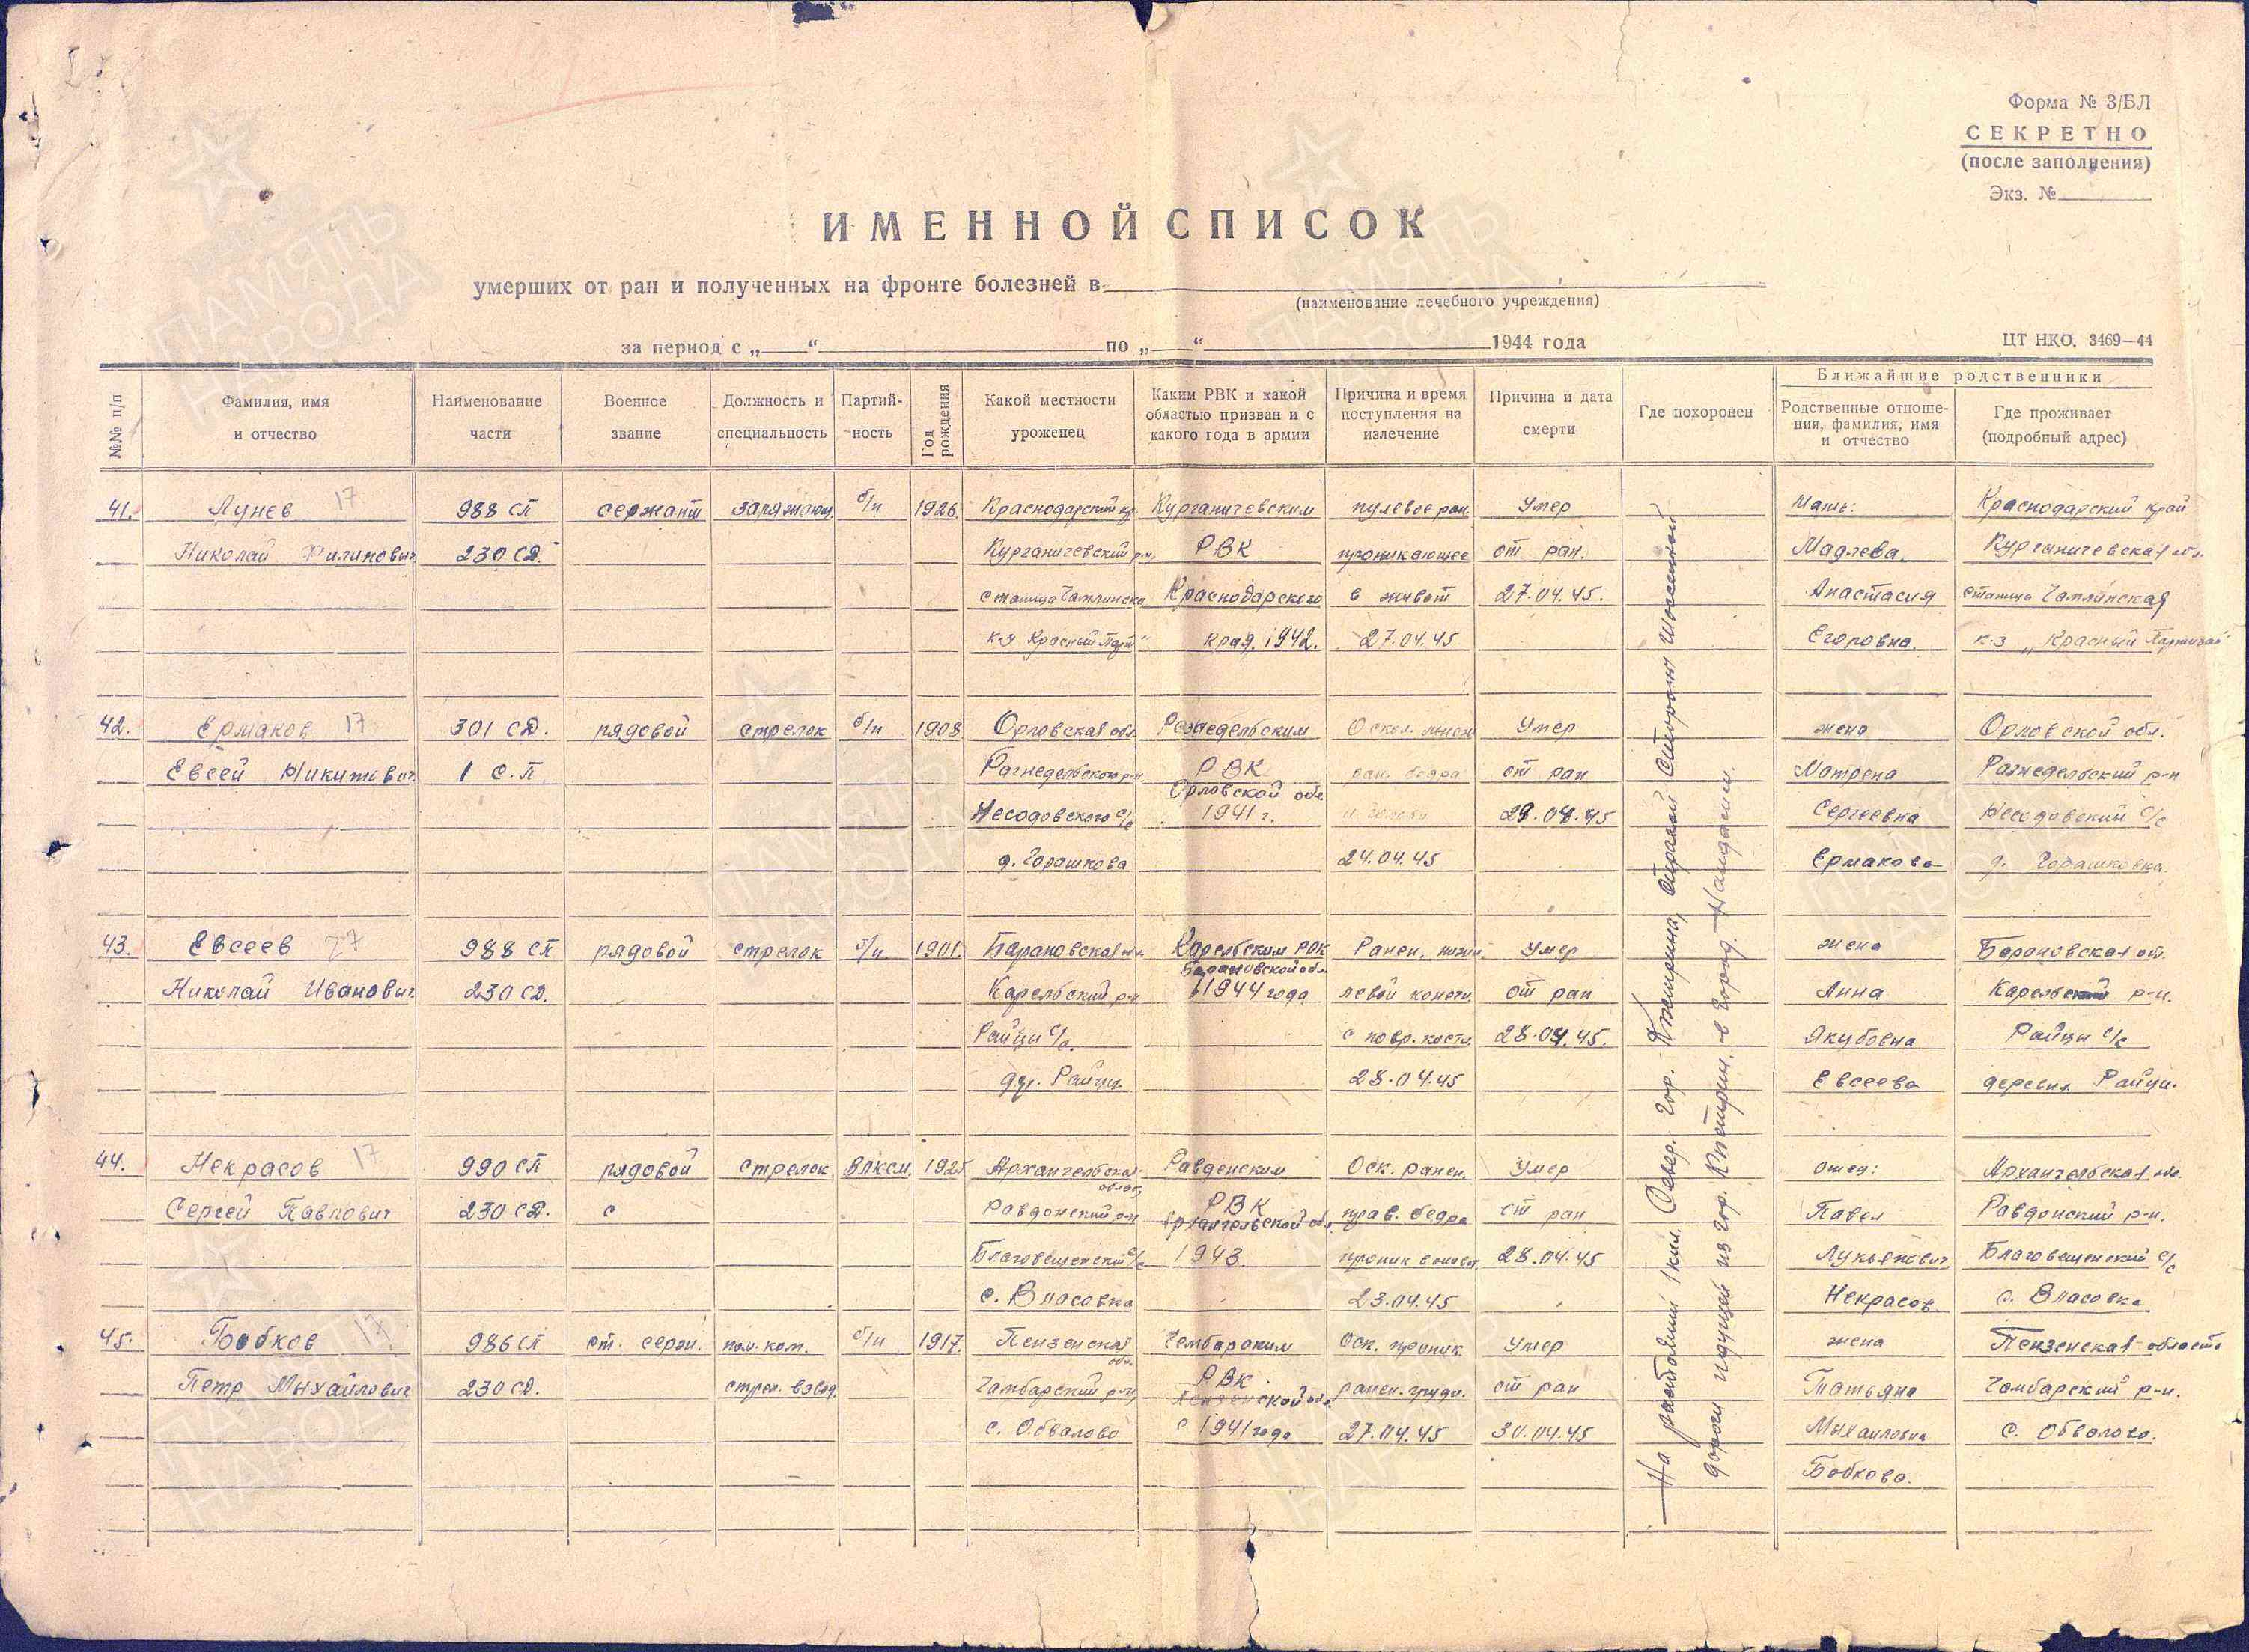 Форма № 3/БЛ
СЕКРЕТНО
(после заполнения)
Экз. №
ИМЕННОЙ СПИСОК
умерших от ран и полученных на фронте болезней в
(наименование лечебного учреждения)
за период с „ “ по „ “ 1944 года
ЦТ НКО. 3469—44
№№ п/п
Фамилия, имя и отчество
Наименование части
Военное звание
Должность и специальность
Партий-ность
Год рождения
Какой местности уроженец
Каким РВК и какой областью призван и с какого года в армии
Причина и время поступления на излечение
Причина и дата смерти
Где похоронен
Ближайшие родственники
Родственные отноше-ния, фамилия, имя и отчество
Где проживает (подробный адрес)
41. Лунев 17 988 сп сержант заряжающ б/п 1926 Краснодарский кр. Курганичевским пулевое ран. Умер мать: Краснодарский край
Николай Филипович 230 СД. Курганичевский р-н, РВК проникающее от ран. Анастасия
станица Краснодарского в живот 27.04.45. станица
к-з Красный Парт" края, 1942. 27.04.45 Егоровна. к-з „Красный Партизан"
42. Ермаков 17 301 СД. рядовой стрелок б/п 1908 Орловская обл. Умер жена Орловской обл.
Евсей Никитович 1 С.П. РВК ран. бедра от ран Матрена р-н
Орловской обл.
1941 г. 29.04.45 Сергеевна с/с
д. Горашкова 24.04.45 Ермакова д. Горашковка
43. Евсеев 27 988 сп рядовой стрелок б/п 1901. Барановская обл. Ранен. Умер жена Барановская об.
Барановской обл.
Николай Иванович 230 СД. Карельский р-н 1944 года левой конечн. от ран Анна Карельский р-н.
Райцы с/с. с повр. кости. 28.04.45. Якубовна Райцы с/с
дер. Райцы 28.04.45 Евсеева деревня Райцы.
44. Некрасов 17 990 сп рядовой стрелок ВЛКСМ, 1925 Архангельская област. Равденским Оск. ранен. Умер отец: Архангельская обл.
Сергей Павлович 230 СД. с Равдонский р-н РВК прав. бедра от ран Павел Равдонский р-н.
Архангельской обл.
Благовещенский с/с 1943. 28.04.45 Лукьянович Благовещенский с/с
с. Власовка 23.04.45 Некрасов. с. Власовка
45. Бобков 17 986 сп ст. серж. пом. ком. б/п 1917. Пензенская обл. Чембарским Оск. проник. Умер жена Пензенская область
Петр Михайлович 230 СД. стрел. взвод. Чамбарский р-н, РВК ранен. груди. от ран Татьяна Чамбарский р-н.
Пензенской обл.
с. Обвалово с 1941 года 27.04.45 30.04.45 Михайловна с. Обвалово.
Бобкова.
На расстоянии 1 кил. Север. гор. Кюстрина, правой стороны шоссейной
дороги идущей из гор. Кюстрин, в город